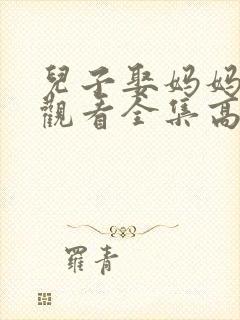 兒子娶媽媽
觀看全集高
羅青